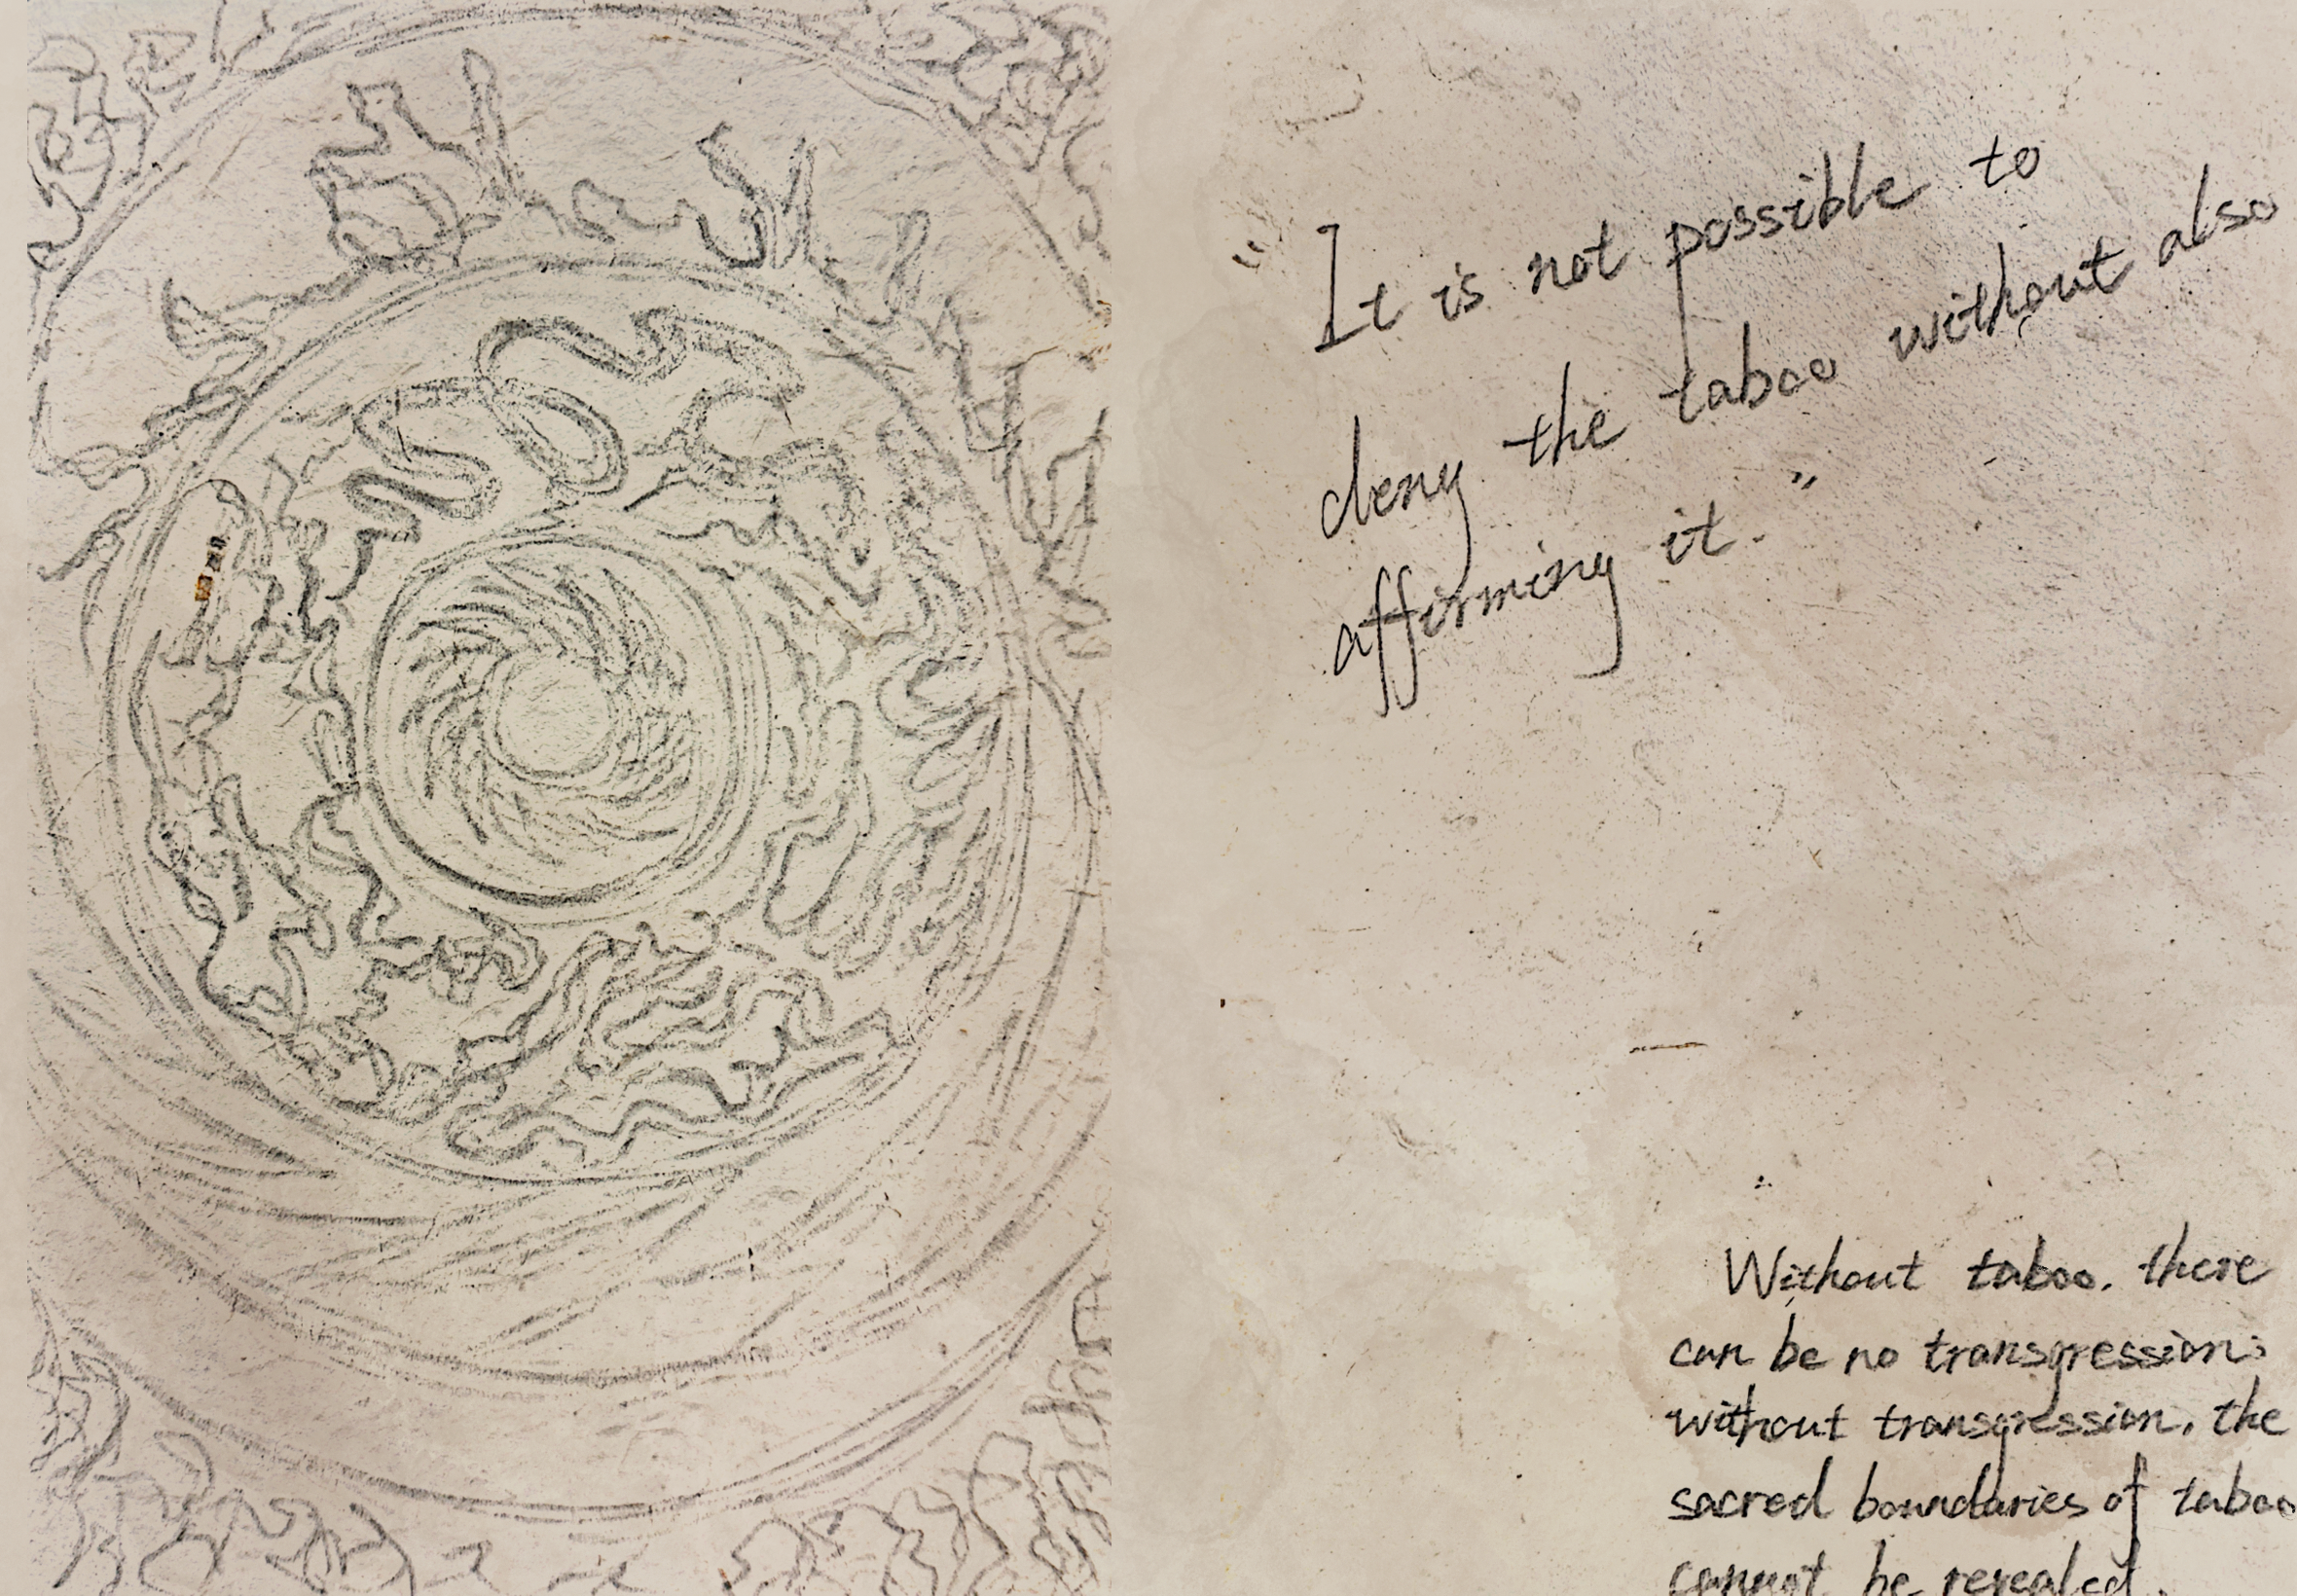 "It is not possible to
deny the taboo without also
affirming it."
Without taboo, there
can be no transgression;
without transgression, the
sacred boundaries of taboo
cannot be revealed.